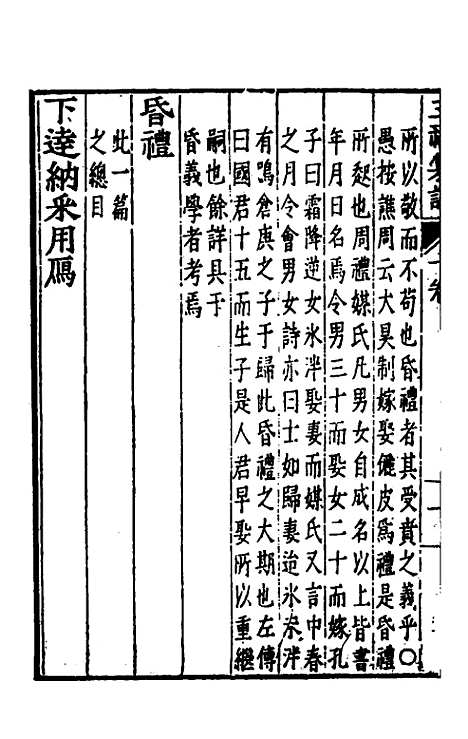 三禮纂註 一卷
所以敬而不苟也昏禮者其受賁之義乎○
愚按譙周云大昊制嫁娶儷皮爲禮是昏禮
所起也周禮媒氏凡男女自成名以上皆書
年月日名焉令男三十而娶女二十而嫁孔
子曰霜降逆女氷泮娶妻而媒氏又言中春
之月令會男女詩亦曰士如歸妻迨氷未泮
有鳴倉庚之子于歸此昏禮之大期也左傳
曰國君十五而生子是人君早娶所以重繼
嗣也餘詳具于
昏義學者考焉
昏禮
此一篇
之總目
下達納采用鴈